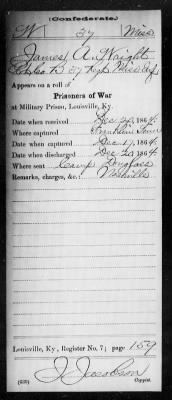 (Confederate.)
W 37 Miss
James A. Wright
Co. 37 Reg't Miss Inf
Appears on a roll of
Prisoners of War
at Military Prison, Louisville, Ky.
Date when received Dec 20, 1864.
Where captured Franklin Tenn
Date when captured Dec 17, 1864.
Date when discharged Dec 20, 1864.
Where sent Camp Douglass
Remarks, charges, &c.: Nashville
Louisville, Ky., Register No. 7; page 159
J. Jacobson
Copyist.